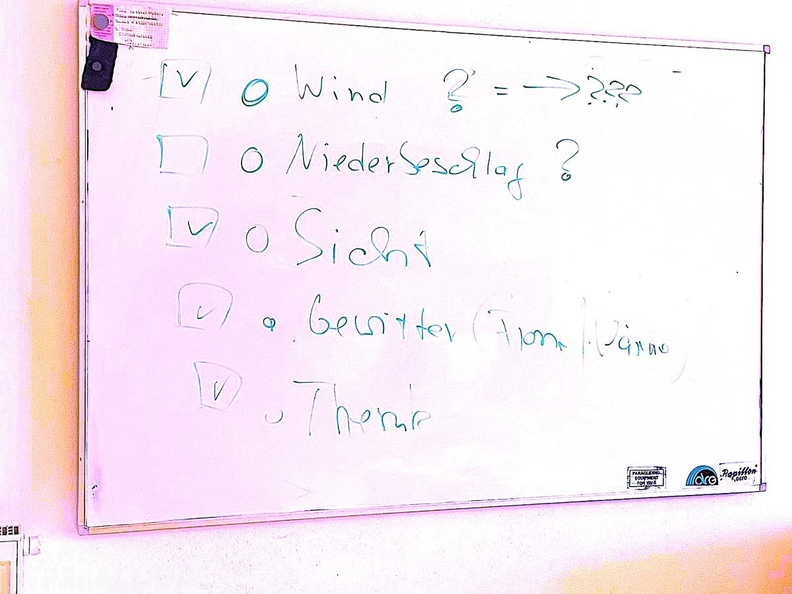 v o Wind ? = → ???
o Niederbeschlag ?
v o Sicht
v o Gewitter (Front / Wärme)
v o Thermik
PARAGLIDING
EQUIPMENT
FOR YOU!
Papillon